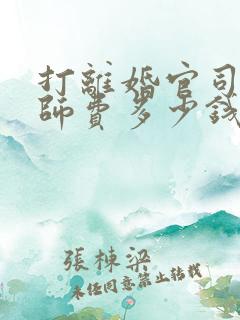 打離婚官司
師費多少錢
張棟梁
未经同意禁止转载